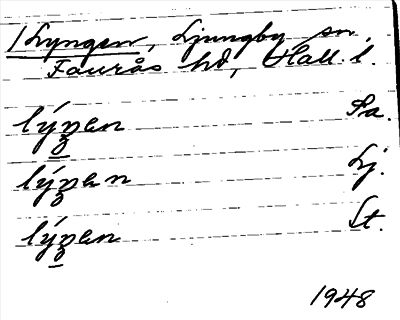 /Lyngen, Ljungby sn,
Faurås hd, Hall. l.
lýŋen Sa.
lýŋen Lj.
lýŋen St.
1948